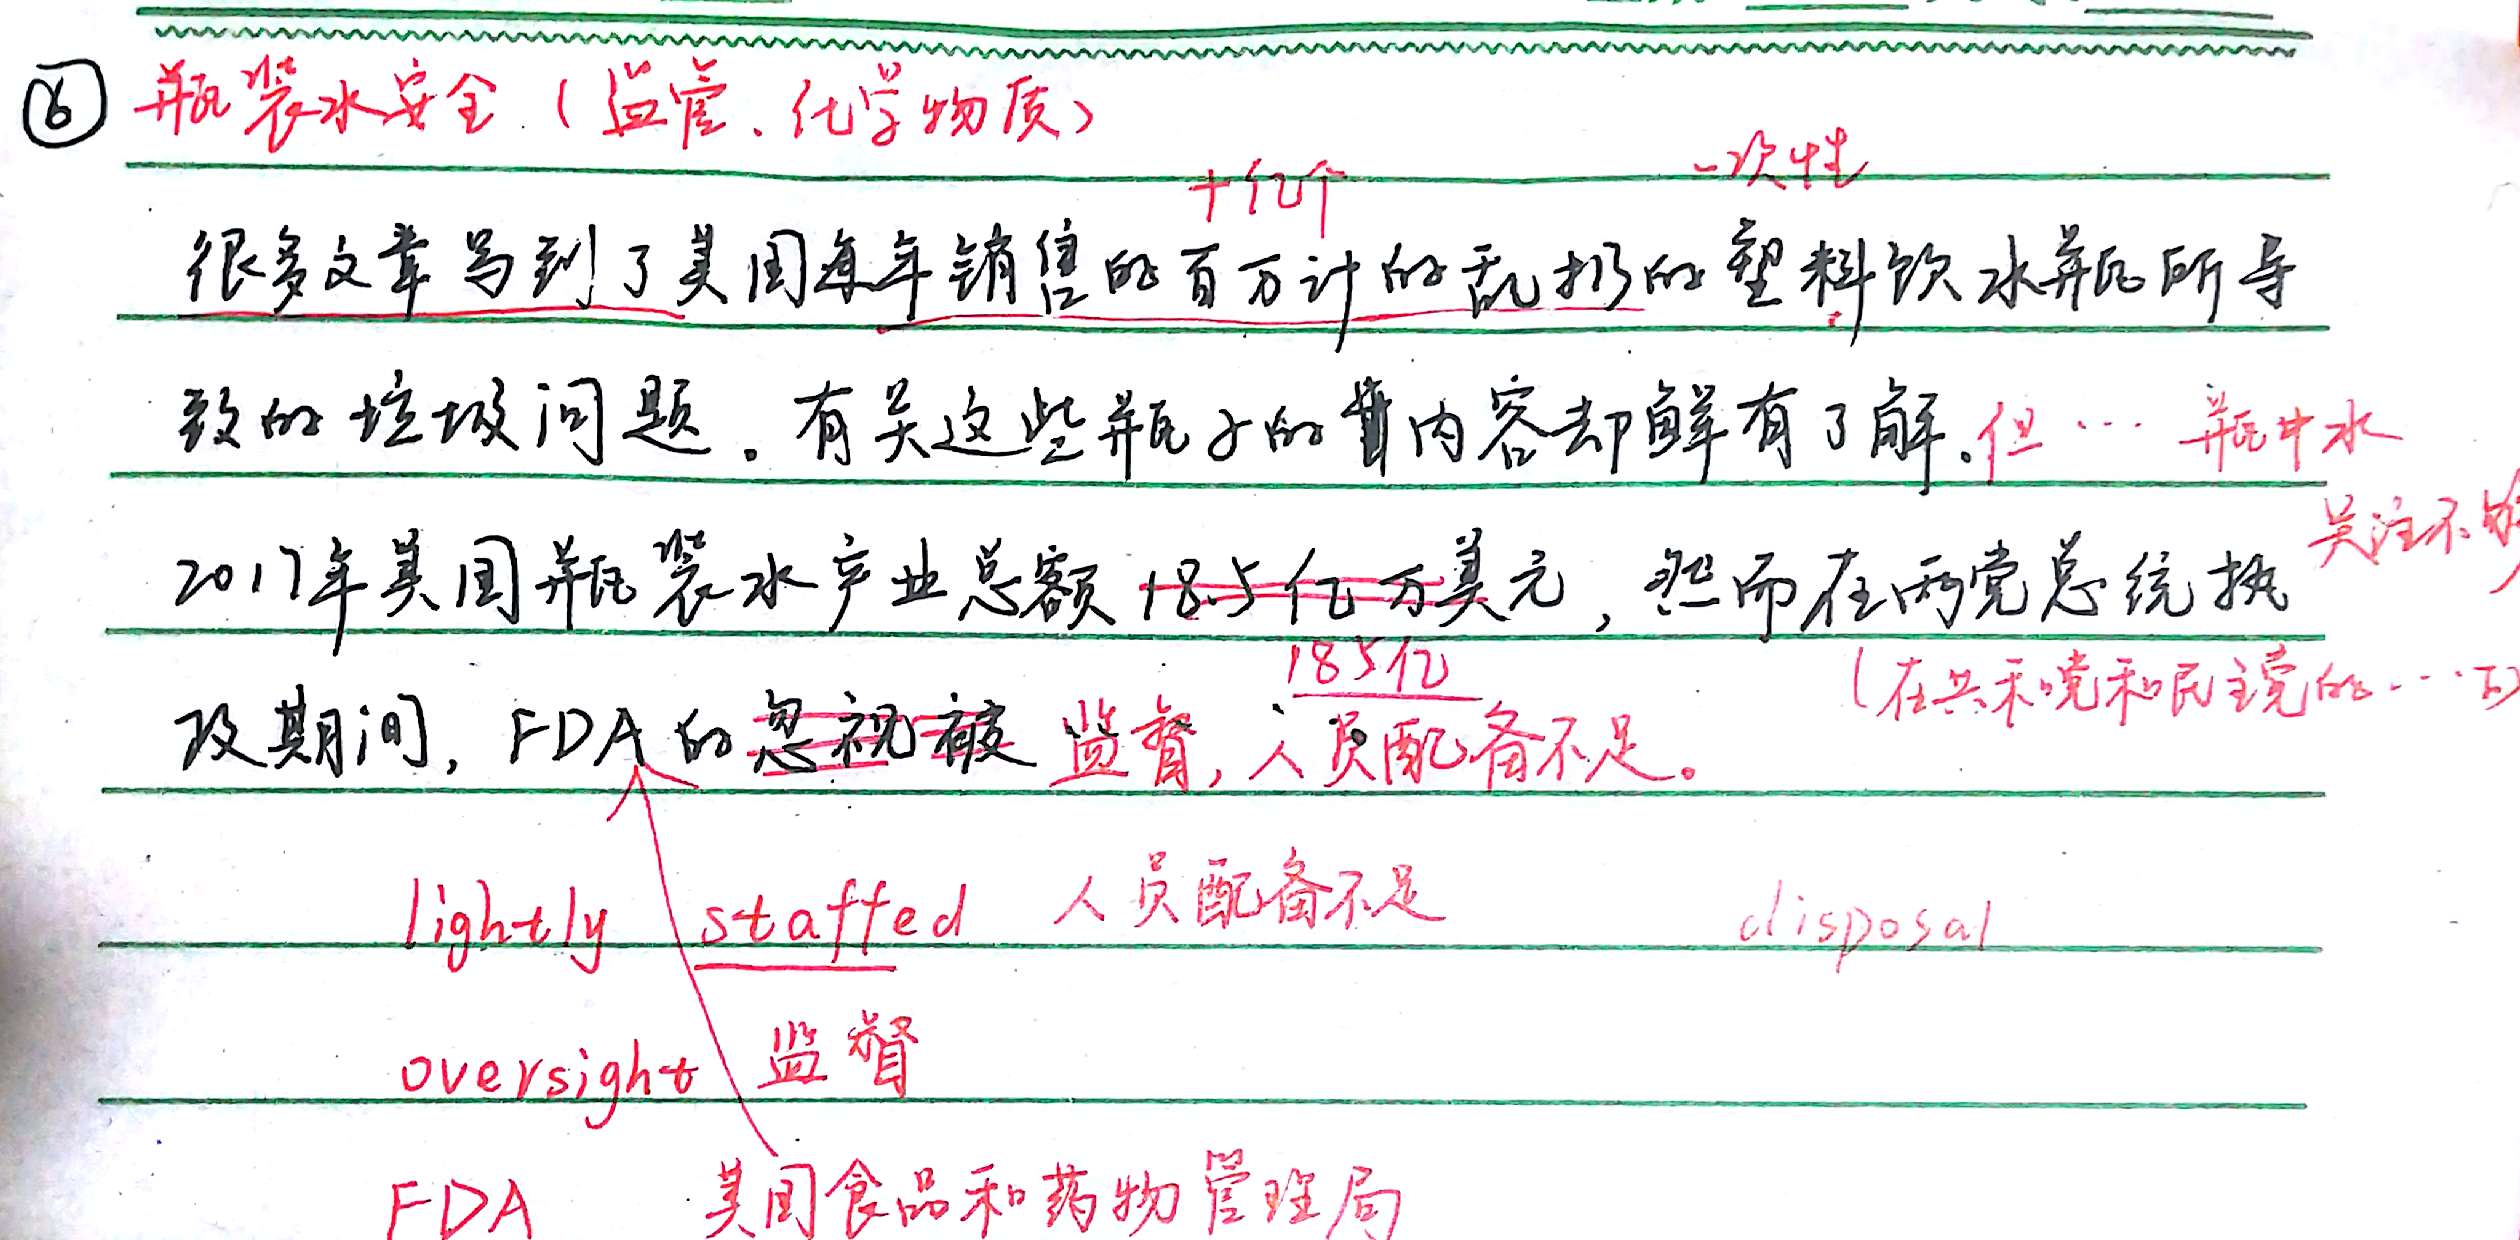 ⑥ 瓶装水安全（监管、化学物质）
十亿个 一次性
很多文章写到了美国每年销售的百万计的乱扔的塑料饮水瓶所导
致的垃圾问题。有关这些瓶子的内容却鲜有了解。但… 瓶中水
关注不够
2017年美国瓶装水产业总额18.5亿万美元，然而在两党总统执
185亿 （在共和党和民主党的…下）
政期间，FDA的忽视被 监督，人员配备不足。
lightly staffed 人员配备不足 disposal
oversight 监督
FDA 美国食品和药物管理局